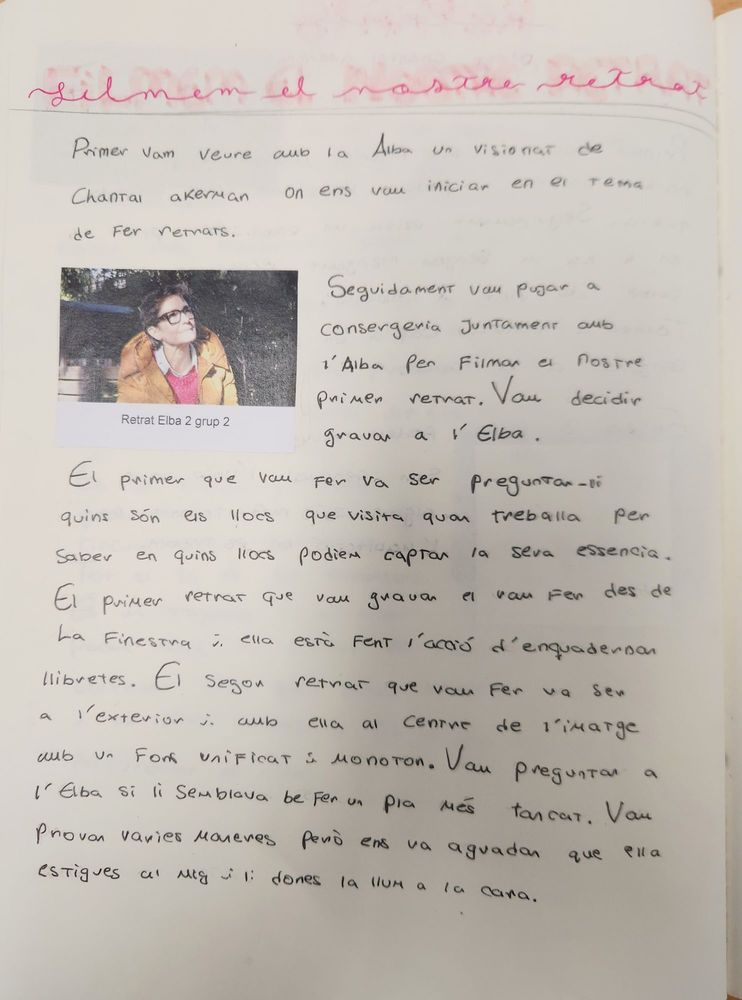 Filmem el nostre retrat
Primer vam veure amb la Alba un visionat de
Chantal akerman on ens vam iniciar en el tema
de fer retrats.
Seguidament vam pujar a
consergeria juntament amb
l'Alba per filmar el nostre
primer retrat. Vam decidir
gravar a l'Elba.
Retrat Elba 2 grup 2
El primer que vam fer va ser preguntar-li
quins són els llocs que visita quan treballa per
saber en quins llocs podiem captar la seva essencia.
El primer retrat que vam gravar el vam fer des de
la finestra i ella està fent l'acció d'enquadernar
llibretes. El segon retrat que vam fer va ser
a l'exterior i amb ella al centre de l'imatge
amb un fons unificat i monoton. Vam preguntar a
l'Elba si li semblava be fer un pla més tancat. Vam
provar varies maneres però ens va agradar que ella
estigues al mig i li dones la llum a la cara.